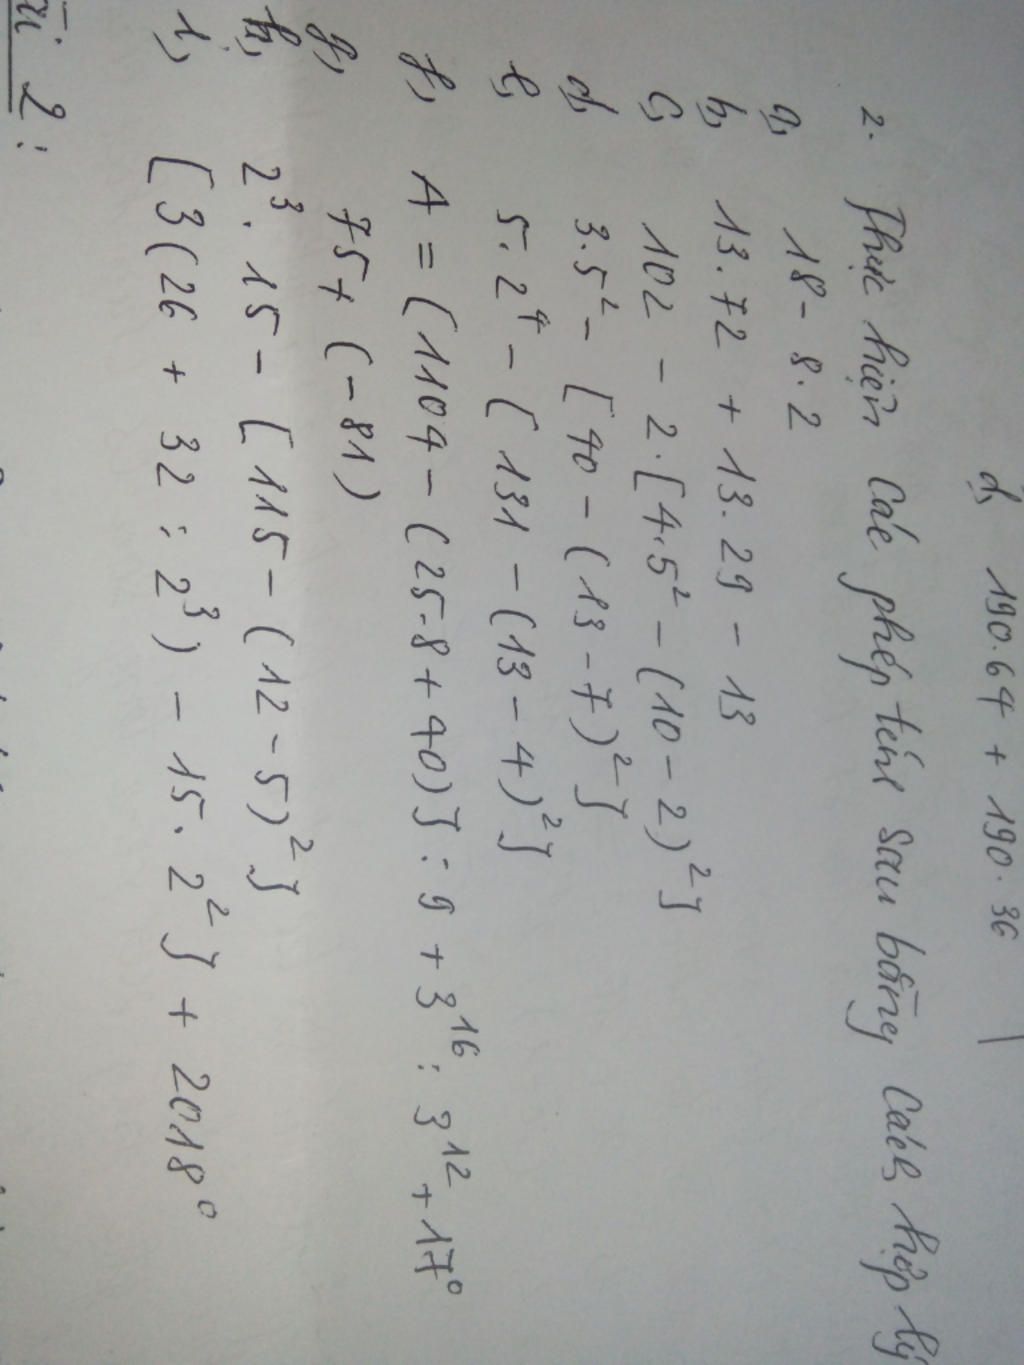 d, 190.64 + 190.36
2. Thực hiện các phép tính sau bằng cách hợp lý
a, 18 - 8.2
b, 13.72 + 13.29 - 13
c, 102 - 2.[4.5² - (10 - 2)²]
d, 3.5² - [40 - (13 - 7)²]
e, 5.2⁴ - [131 - (13 - 4)²]
f, A = [1104 - (25.8 + 40)] : 9 + 3¹⁶ : 3¹² + 17⁰
g, 75 + (-81)
h, 2³.15 - [115 - (12 - 5)²]
i, [3(26 + 32 : 2³) - 15.2²] + 2018⁰
2: